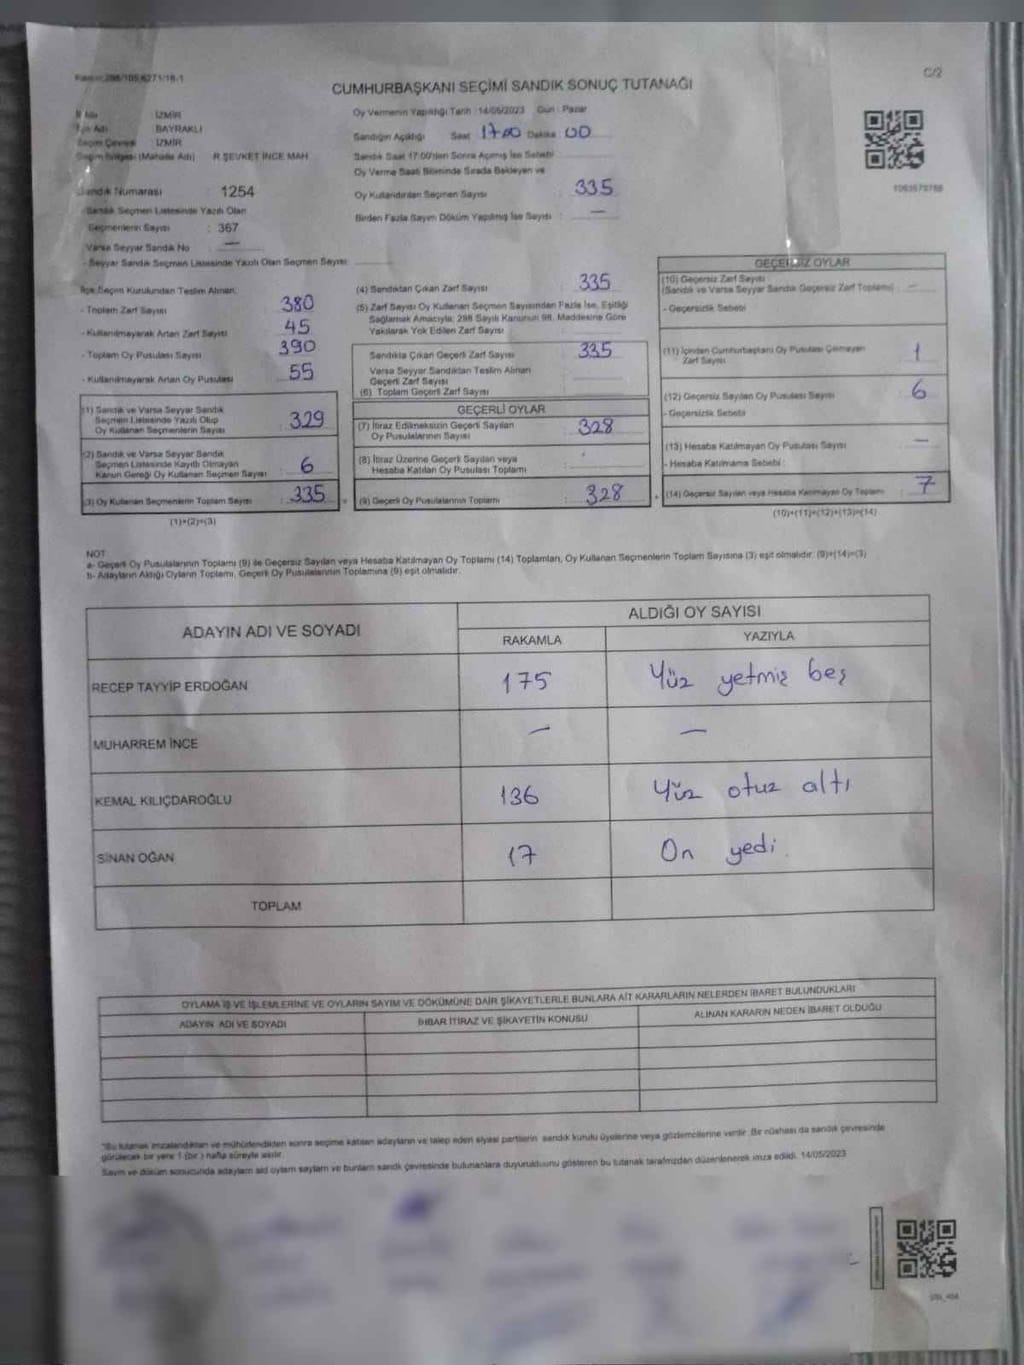 C/2
CUMHURBAŞKANI SEÇİMİ SANDIK SONUÇ TUTANAĞI
İl Adı İZMİR
İlçe Adı BAYRAKLI
Seçim Çevresi İZMİR
Seçim Bölgesi (Mahalle Adı) R.ŞEVKET İNCE MAH
Sandık Numarası : 1254
- Sandık Seçmen Listesinde Yazılı Olan
Seçmenlerin Sayısı : 367
Varsa Seyyar Sandık No —
- Seyyar Sandık Seçmen Listesinde Yazılı Olan Seçmen Sayısı
Oy Vermenin Yapıldığı Tarih : 14/05/2023 Gün : Pazar
Sandığın Açıldığı Saat 17:00 Dakika 00
Sandık Saat 17:00'den Sonra Açılmış İse Sebebi
Oy Verme Saati Bitiminde Sırada Bekleyen ve
Oy Kullandırılan Seçmen Sayısı 335
Birden Fazla Sayım Döküm Yapılmış İse Sayısı : —
1093570788
İlçe Seçim Kurulundan Teslim Alınan:
- Toplam Zarf Sayısı 380
- Kullanılmayarak Artan Zarf Sayısı 45
- Toplam Oy Pusulası Sayısı 390
- Kullanılmayarak Artan Oy Pusulası 55
(1) Sandık ve Varsa Seyyar Sandık
Seçmen Listesinde Yazılı Olup
Oy Kullanan Seçmenlerin Sayısı 329
(2) Sandık ve Varsa Seyyar Sandık
Seçmen Listesinde Kayıtlı Olmayan
Kanun Gereği Oy Kullanan Seçmen Sayısı 6
(3) Oy Kullanan Seçmenlerin Toplam Sayısı : 335
(1)+(2)=(3)
(4) Sandıktan Çıkan Zarf Sayısı 335
(5) Zarf Sayısı Oy Kullanan Seçmen Sayısından Fazla İse, Eşitliği
Sağlamak Amacıyla; 298 Sayılı Kanunun 98. Maddesine Göre
Yakılarak Yok Edilen Zarf Sayısı
Sandıkta Çıkan Geçerli Zarf Sayısı 335
Varsa Seyyar Sandıktan Teslim Alınan
Geçerli Zarf Sayısı
(6) Toplam Geçerli Zarf Sayısı
GEÇERLİ OYLAR
(7) İtiraz Edilmeksizin Geçerli Sayılan
Oy Pusulalarının Sayısı 328
(8) İtiraz Üzerine Geçerli Sayılan veya
Hesaba Katılan Oy Pusulası Toplamı
(9) Geçerli Oy Pusulalarının Toplamı : 328
GEÇERSİZ OYLAR
(10) Geçersiz Zarf Sayısı
(Sandık ve Varsa Seyyar Sandık Geçersiz Zarf Toplamı) —
- Geçersizlik Sebebi
(11) İçinden Cumhurbaşkanı Oy Pusulası Çıkmayan
Zarf Sayısı 1
(12) Geçersiz Sayılan Oy Pusulası Sayısı 6
- Geçersizlik Sebebi
(13) Hesaba Katılmayan Oy Pusulası Sayısı —
- Hesaba Katılmama Sebebi :
(14) Geçersiz Sayılan veya Hesaba Katılmayan Oy Toplamı : 7
(10)+(11)+(12)+(13)=(14)
NOT
a- Geçerli Oy Pusulalarının Toplamı (9) ile Geçersiz Sayılan veya Hesaba Katılmayan Oy Toplamı (14) Toplamları, Oy Kullanan Seçmenlerin Toplam Sayısına (3) eşit olmalıdır. (9)+(14)=(3)
b- Adayların Aldığı Oyların Toplamı, Geçerli Oy Pusulalarının Toplamına (9) eşit olmalıdır.
ADAYIN ADI VE SOYADI
ALDIĞI OY SAYISI
RAKAMLA YAZIYLA
RECEP TAYYİP ERDOĞAN 175 Yüz yetmiş beş
MUHARREM İNCE — —
KEMAL KILIÇDAROĞLU 136 Yüz otuz altı
SİNAN OĞAN 17 On yedi.
TOPLAM
OYLAMA İŞ VE İŞLEMLERİNE VE OYLARIN SAYIM VE DÖKÜMÜNE DAİR ŞİKAYETLERLE BUNLARA AİT KARARLARIN NELERDEN İBARET BULUNDUKLARI
ADAYIN ADI VE SOYADI İHBAR İTİRAZ VE ŞİKAYETİN KONUSU ALINAN KARARIN NEDEN İBARET OLDUĞU
*Bu tutanak imzalandıktan ve mühürlendikten sonra seçime katılan adayların ve talep eden siyasi partilerin sandık kurulu üyelerine veya gözlemcilerine verilir. Bir nüshası da sandık çevresinde
görülecek bir yere 1 (bir) hafta süreyle asılır.
Sayım ve döküm sonucunda adayların ald oyların sayların ve bunların sandık çevresinde bulunanlara duyurulduunu gösteren bu tutanak tarafımızdan düzenlenerek imza edildi. 14/05/2023